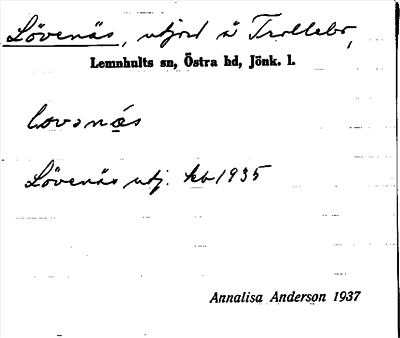 Lövenäs, utjord å Trollebo,
Lemnhults sn, Östra hd, Jönk. l.
Lövenäs utj. kb 1935
Annalisa Anderson 1937